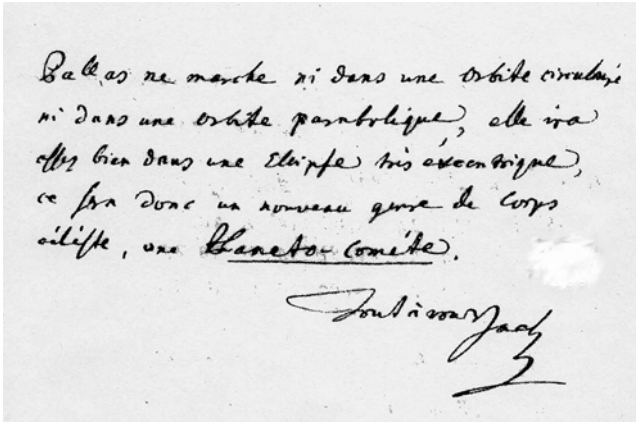 Pallas ne marche ni dans une orbite circulaire
ni dans une orbite parabolique, elle ira
assez bien dans une Elipse très excentrique,
ce sera donc un nouveau genre de Corps
céleste, une Planeto-cométe.
Tout à vous Zach